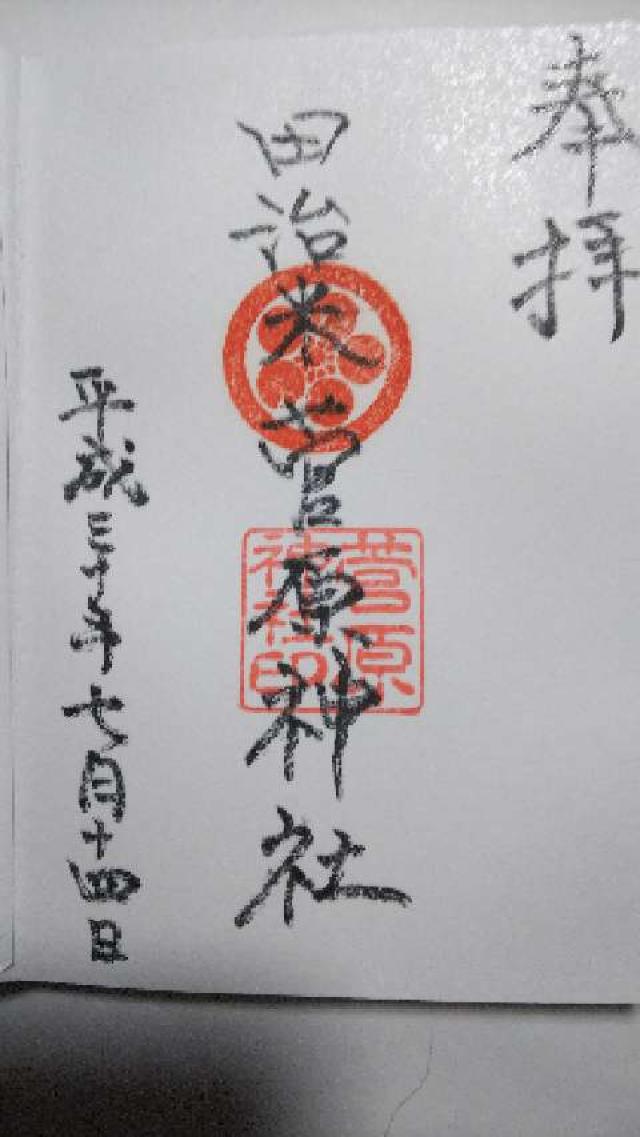 奉拝
田治米菅原神社
菅原
神社印
平成三十年七月十四日